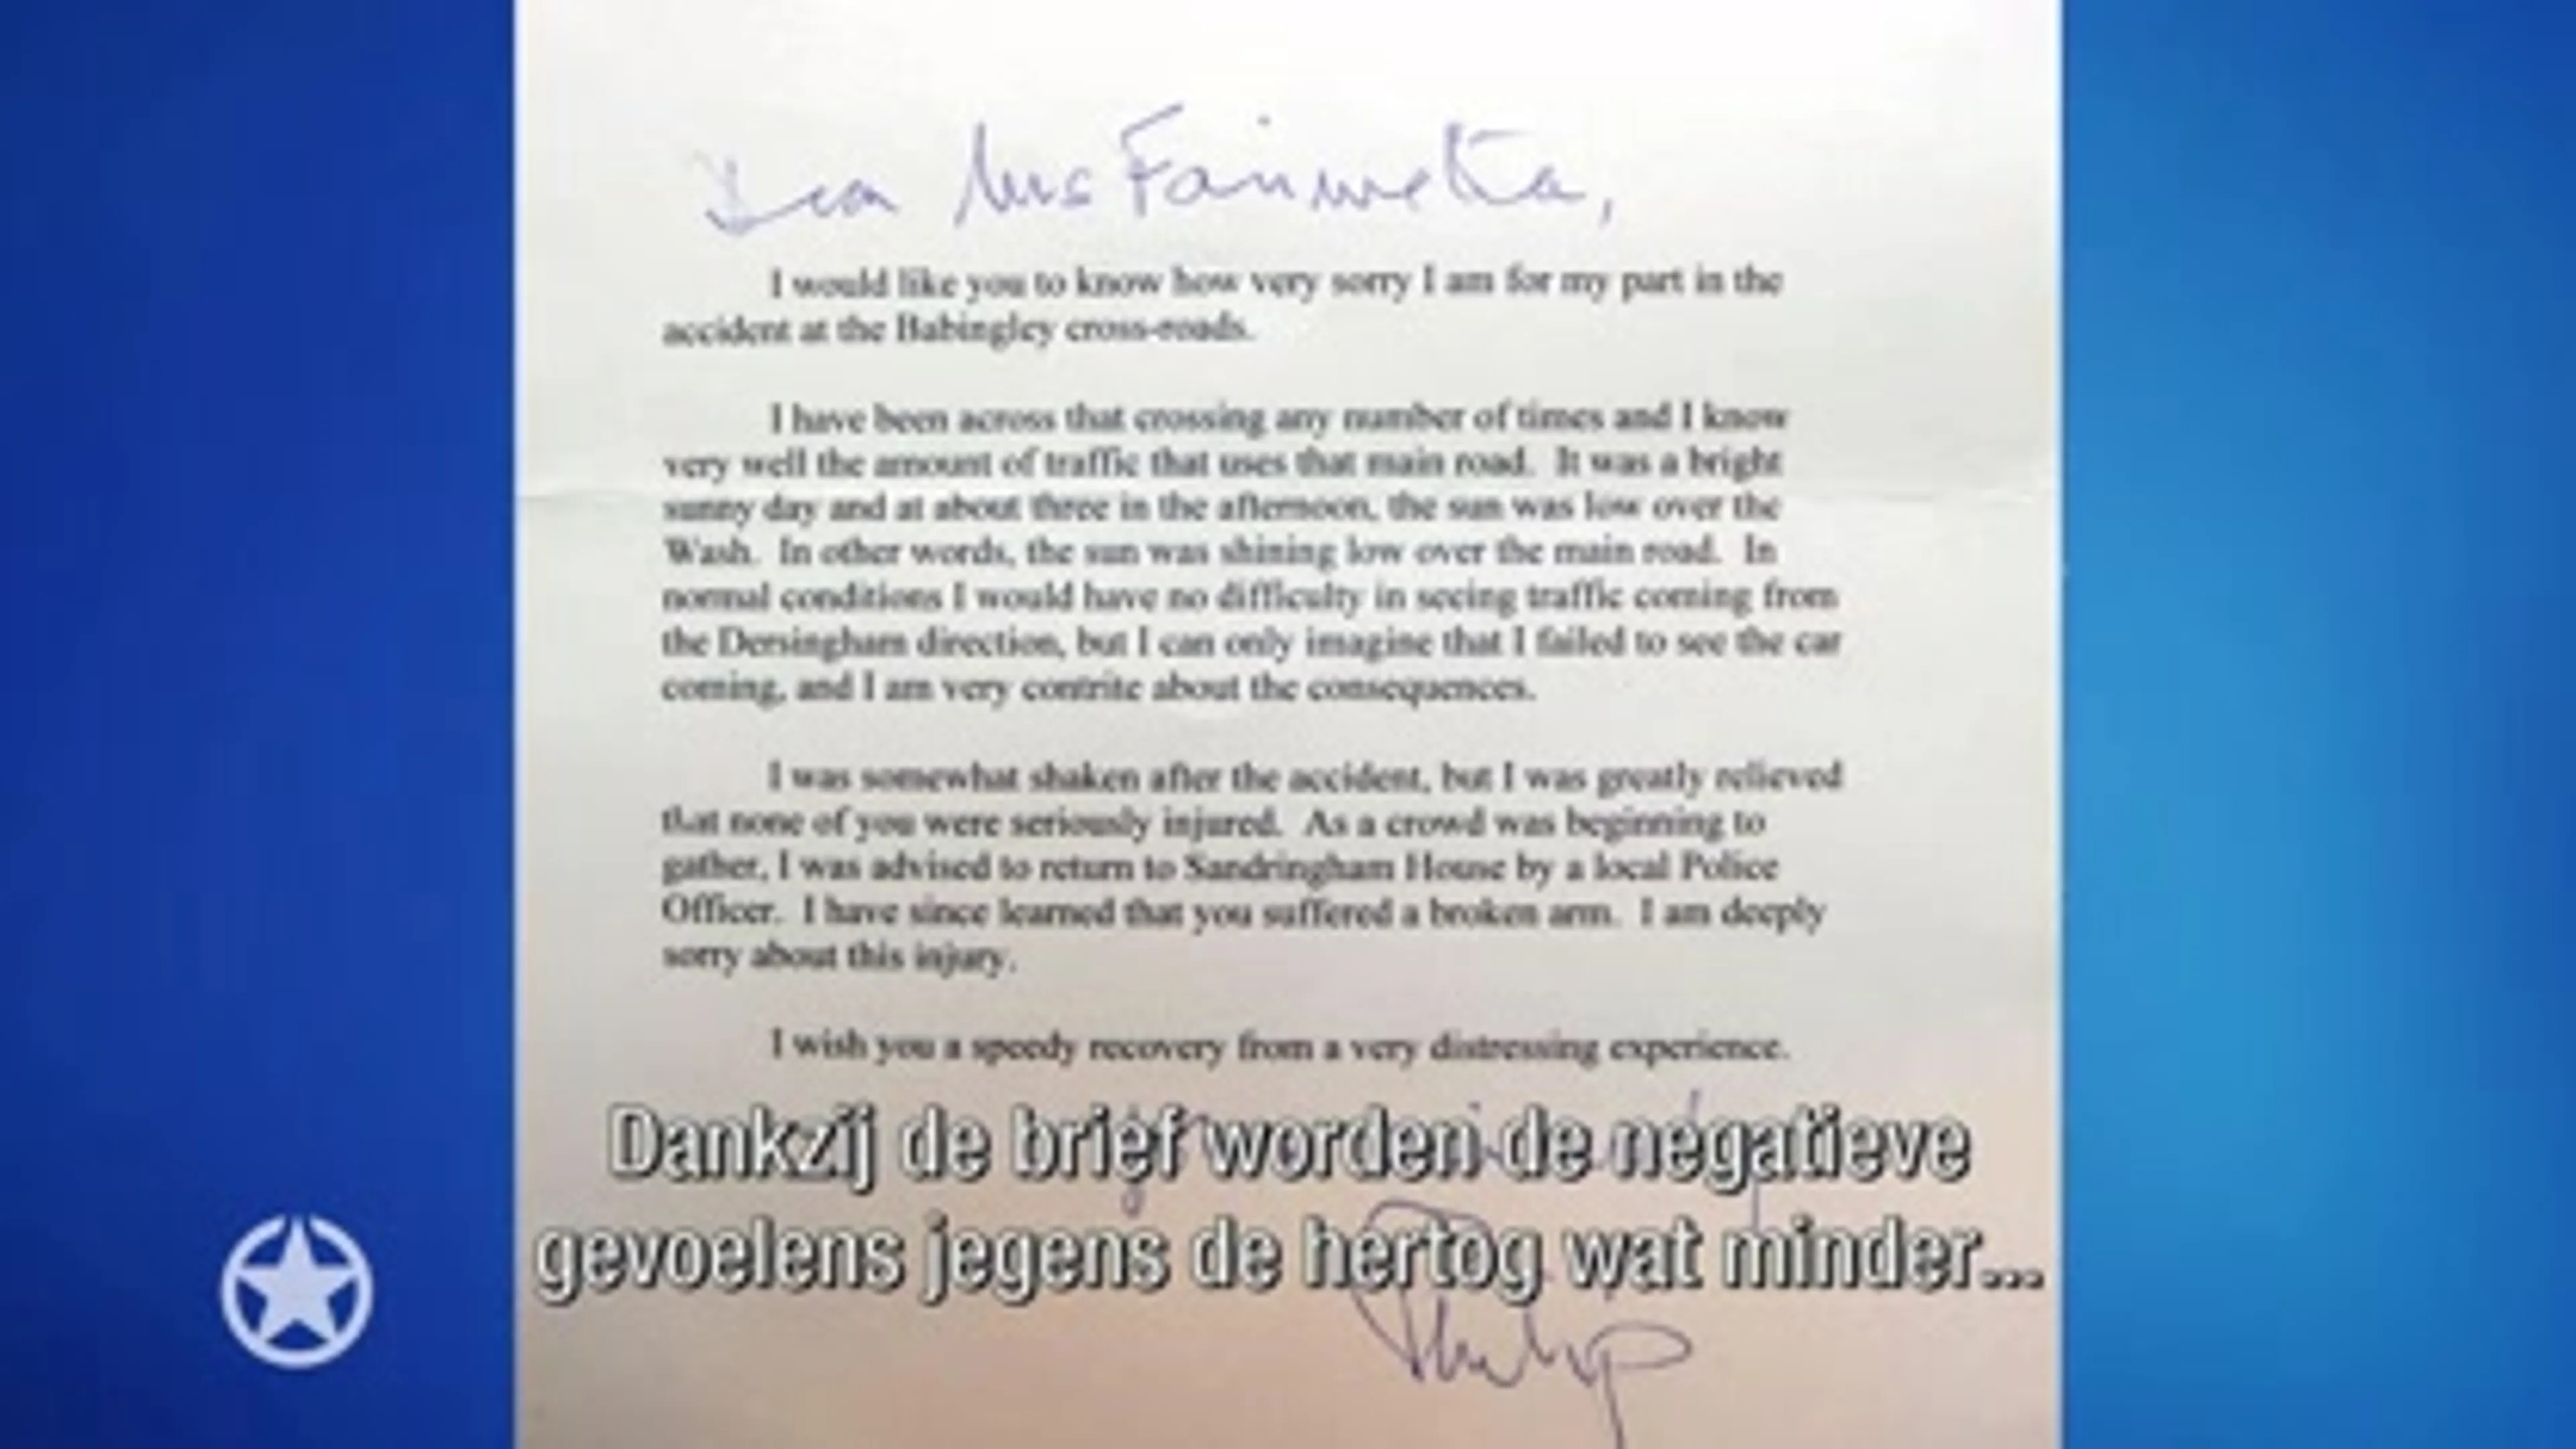 Dear Mrs Fairweather,
I would like you to know how very sorry I am for my part in the
accident at the Babingley cross-roads.
I have been across that crossing any number of times and I know
very well the amount of traffic that uses that main road. It was a bright
sunny day and at about three in the afternoon, the sun was low over the
Wash. In other words, the sun was shining low over the main road. In
normal conditions I would have no difficulty in seeing traffic coming from
the Dersingham direction, but I can only imagine that I failed to see the car
coming, and I am very contrite about the consequences.
I was somewhat shaken after the accident, but I was greatly relieved
that none of you were seriously injured. As a crowd was beginning to
gather, I was advised to return to Sandringham House by a local Police
Officer. I have since learned that you suffered a broken arm. I am deeply
sorry about this injury.
I wish you a speedy recovery from a very distressing experience.
Dankzij de brief worden de negatieve
gevoelens jegens de hertog wat minder...
Philip